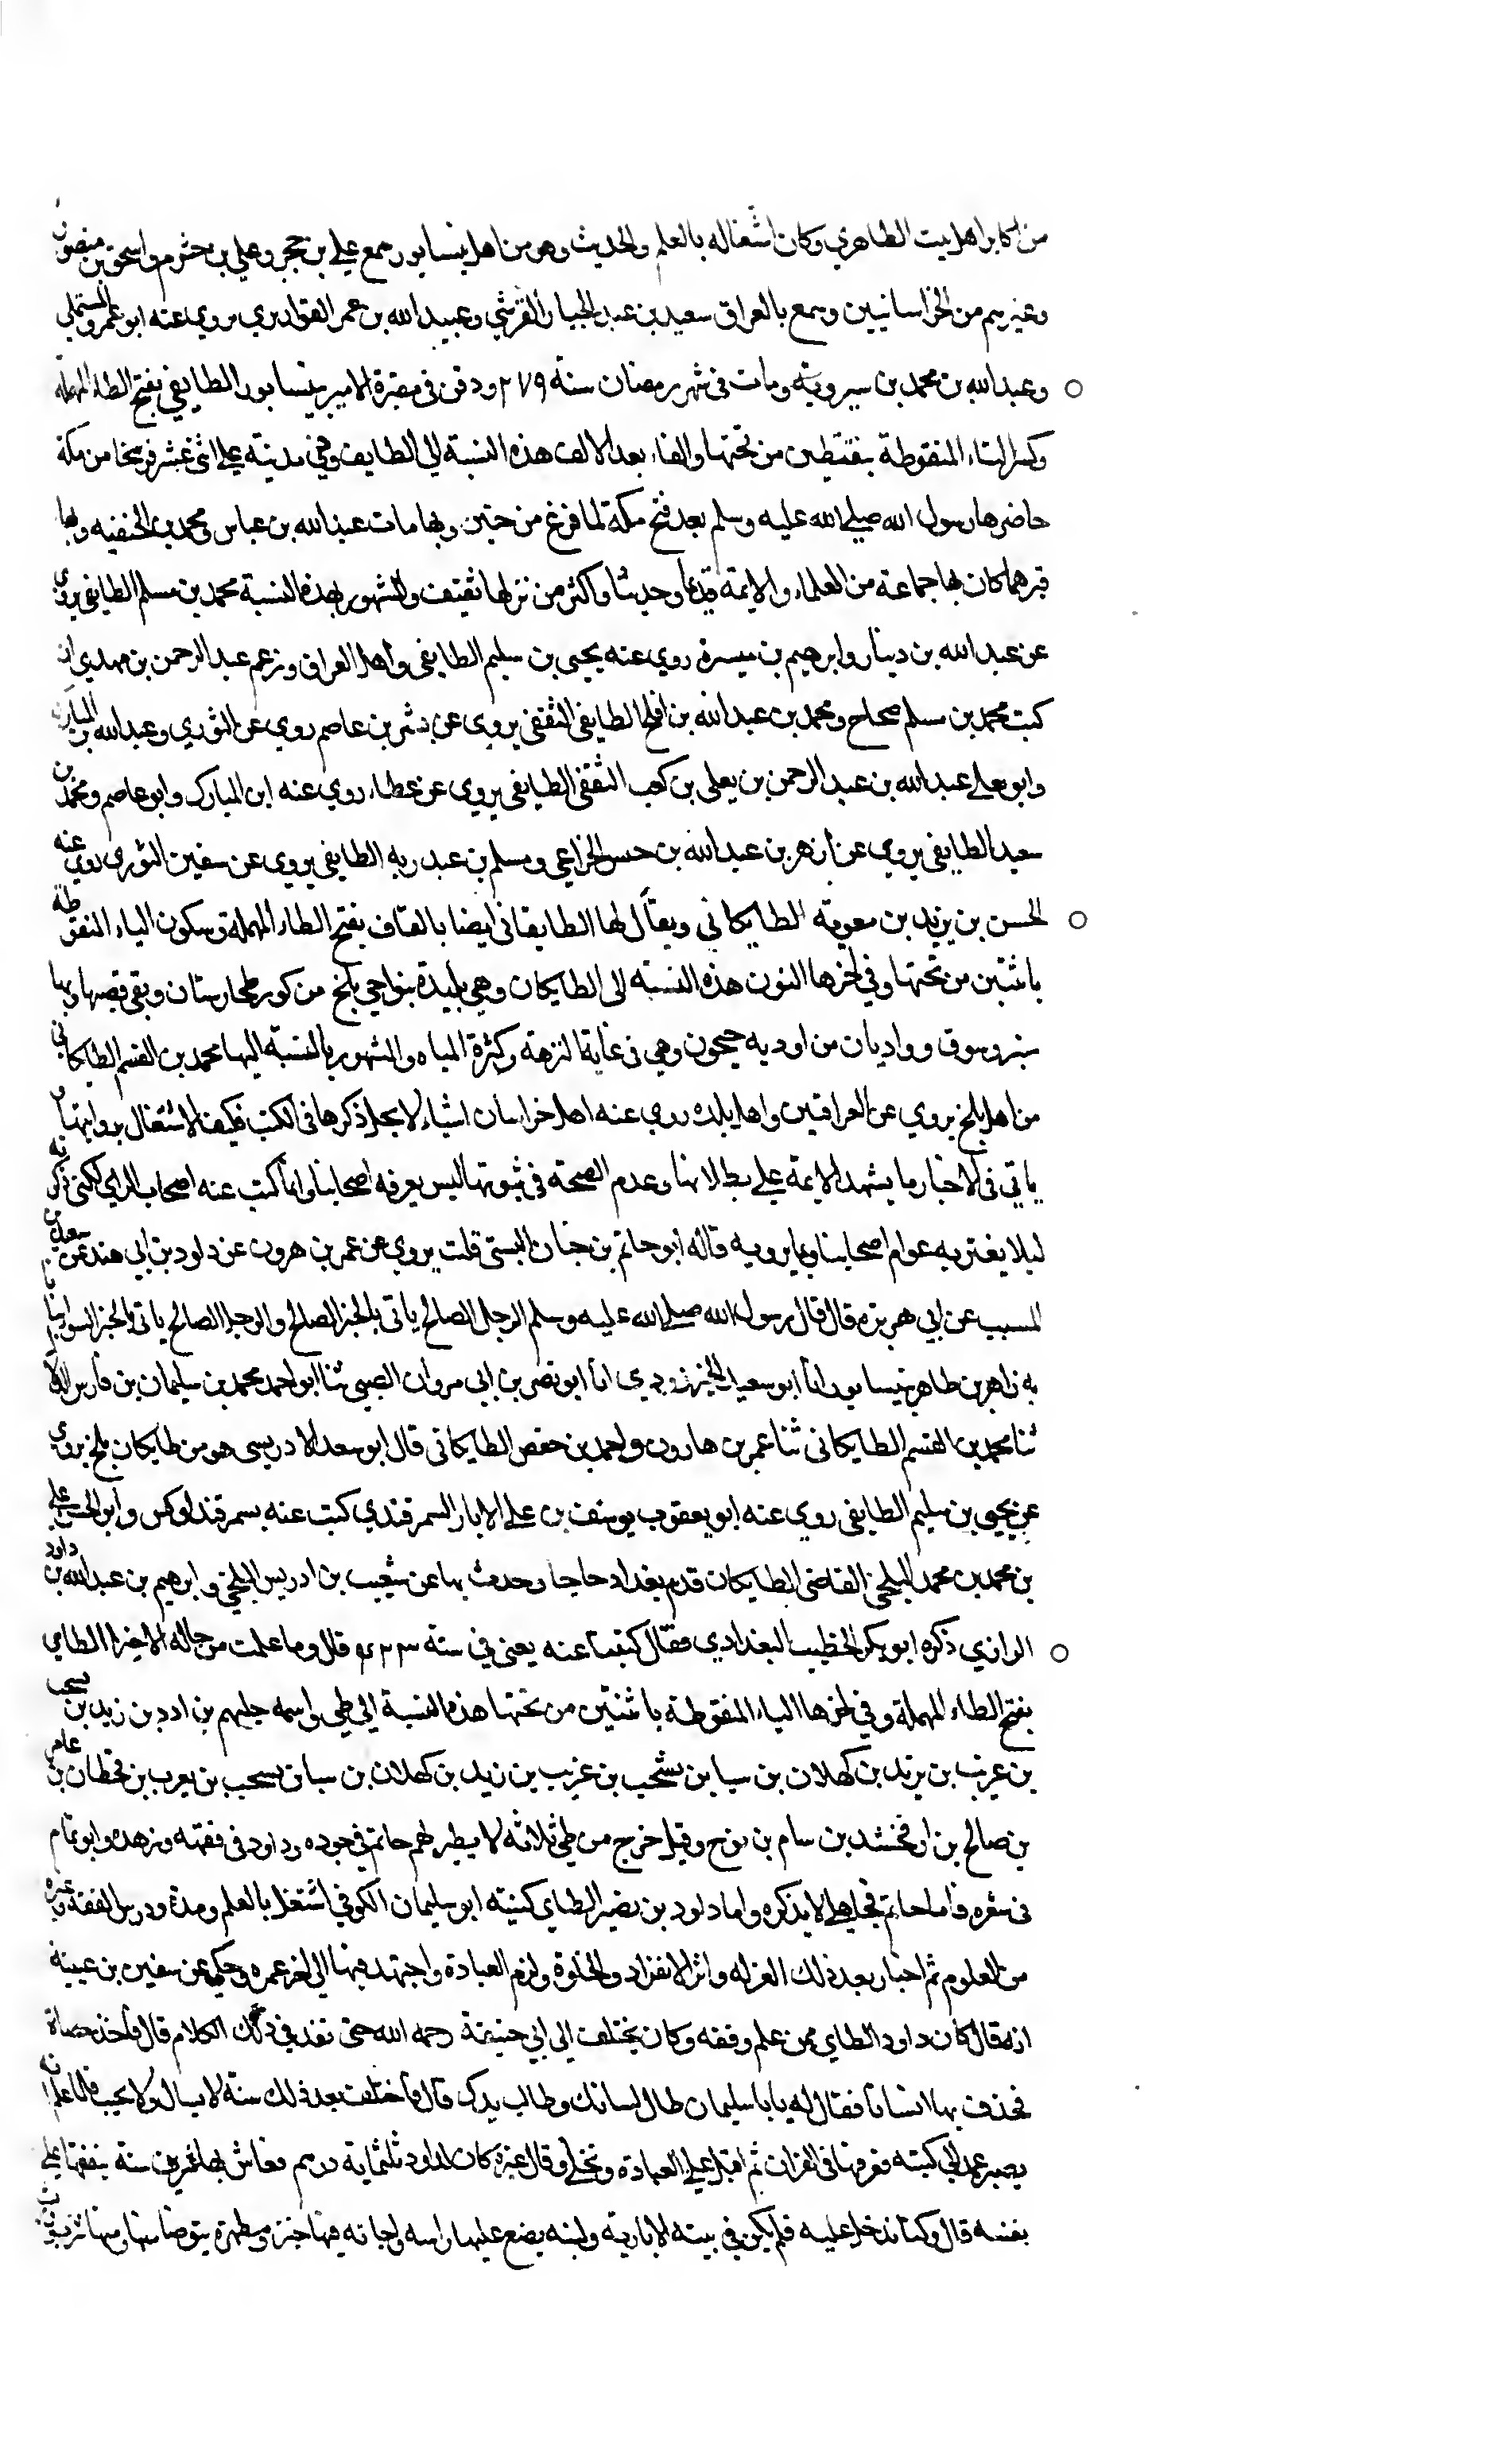 من اكابر اهل بيت الطاهري وكان اشتغاله بالعلم والحديث وهو من اهل نيسابور سمع علي بن حجر وعلي بن خشرم واسحق بن منصور
وغيرهم من الخراسانيين وسمع بالعراق سعيد بن عبد الجبار القرشي وعبيد الله بن عمر القواريري روي عنه ابو عمرو المستملي
وعبد الله بن محمد بن سيرويه ومات في شهر رمضان سنة ٢٧٩ ودفن في مقبرة الامير بنيسابور الطايفي بفتح الطاء المهملة
وكسر الياء المنقوطة بنقطتين من تحتها والفاء بعد الالف هذه النسبة الي الطايف وهي مدينة علي اثني عشر فرسخا من مكة
حاصرها رسول الله صلي الله عليه وسلم بعد فتح مكة لما فرغ من حنين وبها مات عبد الله بن عباس ومحمد بن الحنفيه وبها
قبرهما كان بها جماعة من العلماء والايمة قديما وحديثا واكثر من نزلها ثقيف والمشهور بهذه النسبة محمد بن مسلم الطايفي يروي
عن عبد الله بن دينار وابرهيم بن ميسرة روي عنه يحيى بن سليم الطايفي واهل العراق وزعم عبد الرحمن بن مهدي ان
كتب محمد بن مسلم صحاح ومحمد بن عبد الله بن افلح الطايفي الثقفي يروي عن بشر بن عاصم روي عن الثوري وعبد الله بن المبارك
وابو يعلي عبد الله بن عبد الرحمن بن يعلي بن كعب الثقفي الطايفي يروي عن عطاء روي عنه ابن المبارك وابو عاصم ومحمد بن
سعيد الطايفي يروي عن ازهر بن عبد الله بن حسن الخزاعي ومسلم بن عبد ربه الطايفي يروي عن سفين الثوري روي عنه
الحسن بن يزيد بن معوية الطايكاني ويقال لها الطايقاني ايضا بالقاف بفتح الطاء المهملة وسكون الياء المنقوطة
باثنتين من تحتها وفي اخرها النون هذه النسبة الى الطايكان وهي بليدة بنواحي بلخ من كور طخارستان وبقي قصبها وبها
منبر وسوق وواديان من اودية جيحون وهي في غاية النزهة وكثرة المياه والمشهور بالنسبة اليها محمد بن القسم الطايكاني
من اهل بلخ يروي عن العراقيين واهل بلده روي عنه اهل خراسان اشياء لا يحل ذكرها في الكتب فكيف الاشتغال بروايتها
ياتي في الاخبار ما يشهد الايمة علي بطلانها وعدم الصحة في ثبوتها ليس يعرفه اصحابنا وانما كتب عنه اصحاب الراي لكني ذكرته
ليلا يغتر به عوام اصحابنا وبما يرويه قاله ابو حاتم بن حبان البستي قلت يروي عن عمر بن هرون عن داود بن ابي هند عن سعيد بن
المسيب عن ابي هريرة قال قال رسول الله صلي الله عليه وسلم الرجل الصالح ياتي بالخبر الصالح والرجل الصالح ياتي بالخبر السوء انبانا
به زاهر بن طاهر بنيسابور انا ابو سعيد الخيرزوذي انا ابو نصر بن ابي مروان الضبي ثنا ابو احمد محمد بن سليمان بن فارس الدلال
ثنا محمد بن القسم الطايكاني ثنا عمر بن هارون واحمد بن حفص الطايكاني قال ابو سعد الادريسي هو من طايكان بلخ يروي
عن يحيى بن سليم الطايفي روي عنه ابو يعقوب يوسف بن علي الابار السمرقندي كتب عنه بسمرقند اوكس وابو الحسن علي
بن محمد بن محمد البلخي القاضي الطايكان قدم بغداد حاجا وحدث بها عن شعيب بن ادريس البلخي وابرهيم بن عبد الله بن داود
الرازي ذكره ابو بكر الخطيب البغدادي فقال كتبنا عنه يعني في سنة ٤٢٣ قال وما علمت من حاله الا خيرا الطاي
بفتح الطاء المهملة وفي اخرها الياء المنقوطة باثنتين من تحتها هذه النسبة الي طي واسمه جلهم بن ادد بن زيد بن يشجب
بن عريب بن يزيد بن كهلان بن سبا بن يشجب بن عريب بن زيد بن كهلان بن سبا بن يشجب بن يعرب بن قحطان بن عامر
بن صالح بن ارفخشد بن سام بن نوح وقيل خرج من طي ثلاثة لا يطير لهم حاتم في جوده وداود في فقهه وزهده وابو تمام
في شعره فاما حاتم فجاهلي لا يذكره واما داود بن نصير الطاي كنيته ابو سليمان الكوفي اشتغل بالعلم ومدة ودرس الفقه وغيره
من العلوم ثم اختار بعد ذلك العزله واثر الانفراد والخلوة ولزم العبادة واجتهد فيها الي اخر عمره وحكي عن سفين بن عيينة
انه قال كان داود الطاي ممن علم وفقه وكان يختلف الي ابي حنيفة رحمه الله حتى نفد في ذلك الكلام قال فاخذ حصاة
فحذف بها انسانا فقال له يا با سليمان طال لسانك وطالب يدك قال فاختلف بعد ذلك سنة لا يسال ولا يجيب فلما علم انه
يصبر عمد الي كتبه فغرقها في الفرات ثم اقبل علي العبادة وتخلي وقال غيره كان لداود ثلثماية درهم فعاش بها عشرين سنة ينفقها علي
نفسه قال وكنا ندخل عليه فلم يكن في بيته الا بارية ولبنه يضع عليها راسه واجانه فيها خبز ومطهرة يتوضا منها ومنها يشرب